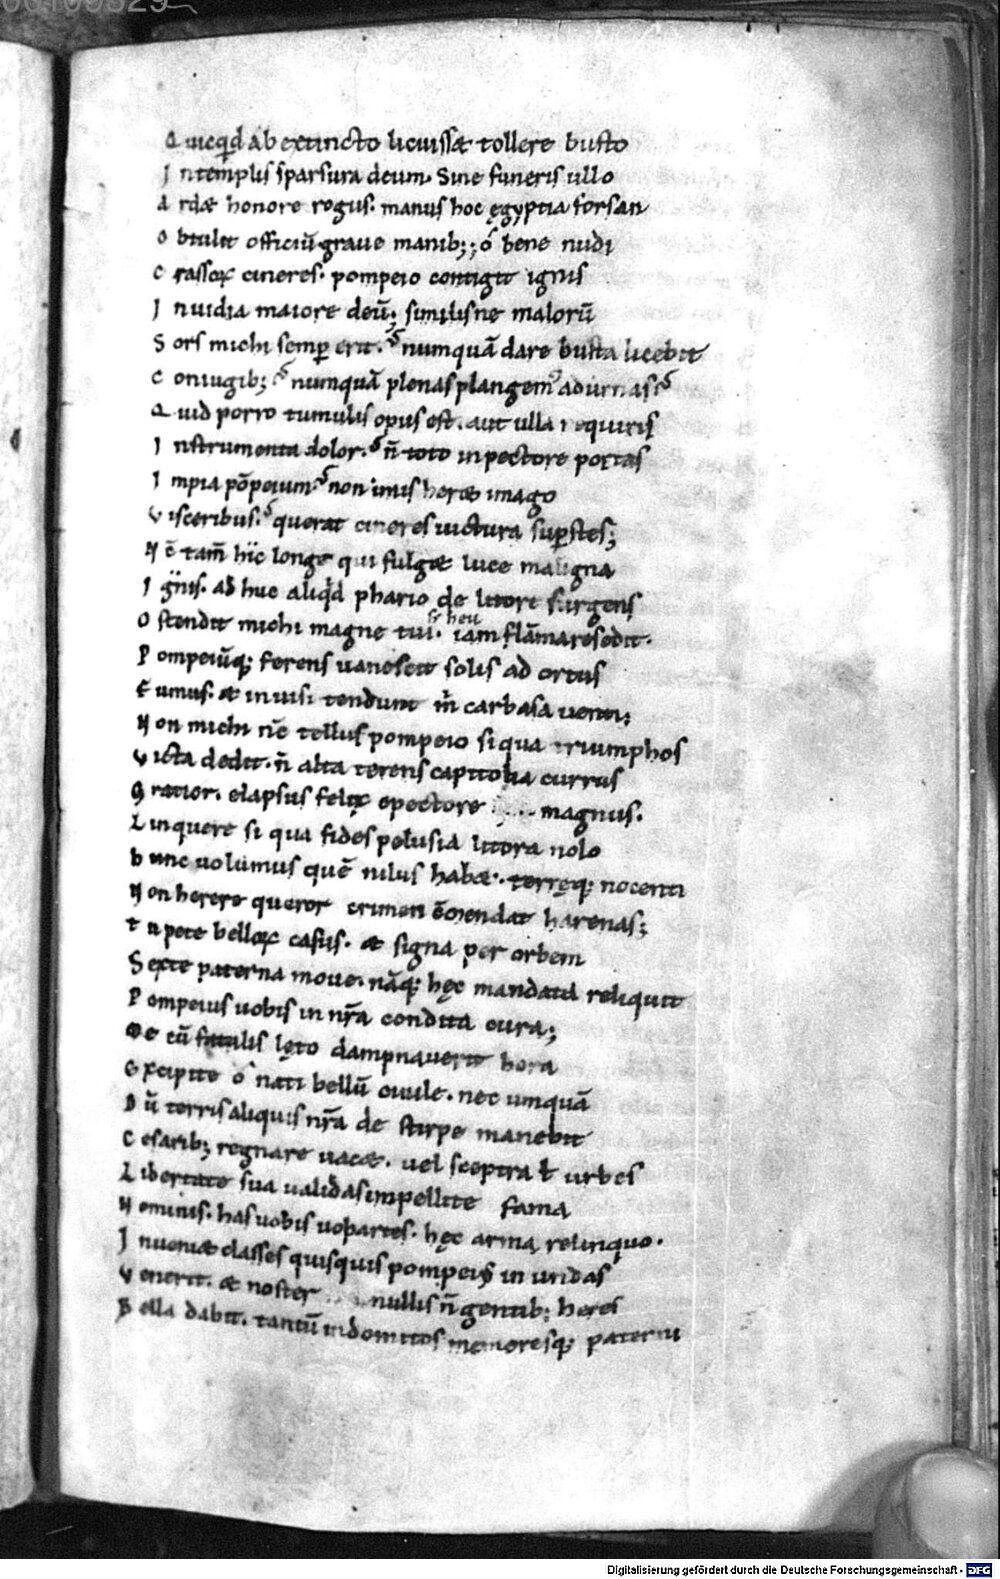 Quicq̇d ab extincto licuissæ tollere busto
In templis sparsura deum. Sine funeris ullo
Ardæ honore rogus. manus hoc ęgyptia forsan
Obtulit officiū graue manib;; ó bene nudi
Crassoꝝ cineres. pompeio contigit ignis
Inuidia maiore deū; similis ne malorū
Sors michi semꝑ erit. numquā dare busta licebit
Coniugib; numquā plenas plangemꝰ ad urnas
Quid porro tumulis opus est. aut ulla requiris
Instrumenta dolor. n̄ toto in pectore portas
Impia pōpeium. non imis heræ imago
Visceribus. querat cineres uictura suꝑstes;
Nc̄ tam̄ hic longe qui fulgæ luce maligna
Ignis. ad huc aliq̇d phario de litore surgens
Ostendit michi magne tui. iam flāma resedit.
Pompeiūq; ferens uanescit solis ad ortus
Fumus. æ inuisi tendunt m̄ carbasa uenti;
Non michi nc̄ tellus pompeio siqua triumphos
Victa dedit. n̄ alta terens capitolia currus
Gratior. elapsus felix epectore magnus.
Linquere si qua fides pelusia litora nolo
hunc uolumus quē nilus habæ. terręq; nocenti
Non herere queror crimen cōmendat harenas;
Tu pete belloꝝ casus. æ signa per orbem
Sexte paterna moue. nāq; hęc mandata reliquit
Pompeius uobis in nr̄a condita cura;
Me cū fatalis lęto dampnauerit hora
Excipite ó nati bellū ciuile. nec umquā
Dū terris aliquis nr̄a de stirpe manebit
Cesarib; regnare uacæ. uel sceptra ł urbes
Libertate sua ualidas impellite fama
Nominis. has uobis partes. hęc arma relinquo.
Inueniæ classes quisquis pompeiꝰ in undas
Venerit. æ noster nullis n̄ gentib; heres
Bella dabit. tantū indomitos memoresq; paterni
Digitalisierung gefördert durch die Deutsche Forschungsgemeinschaft - DFG